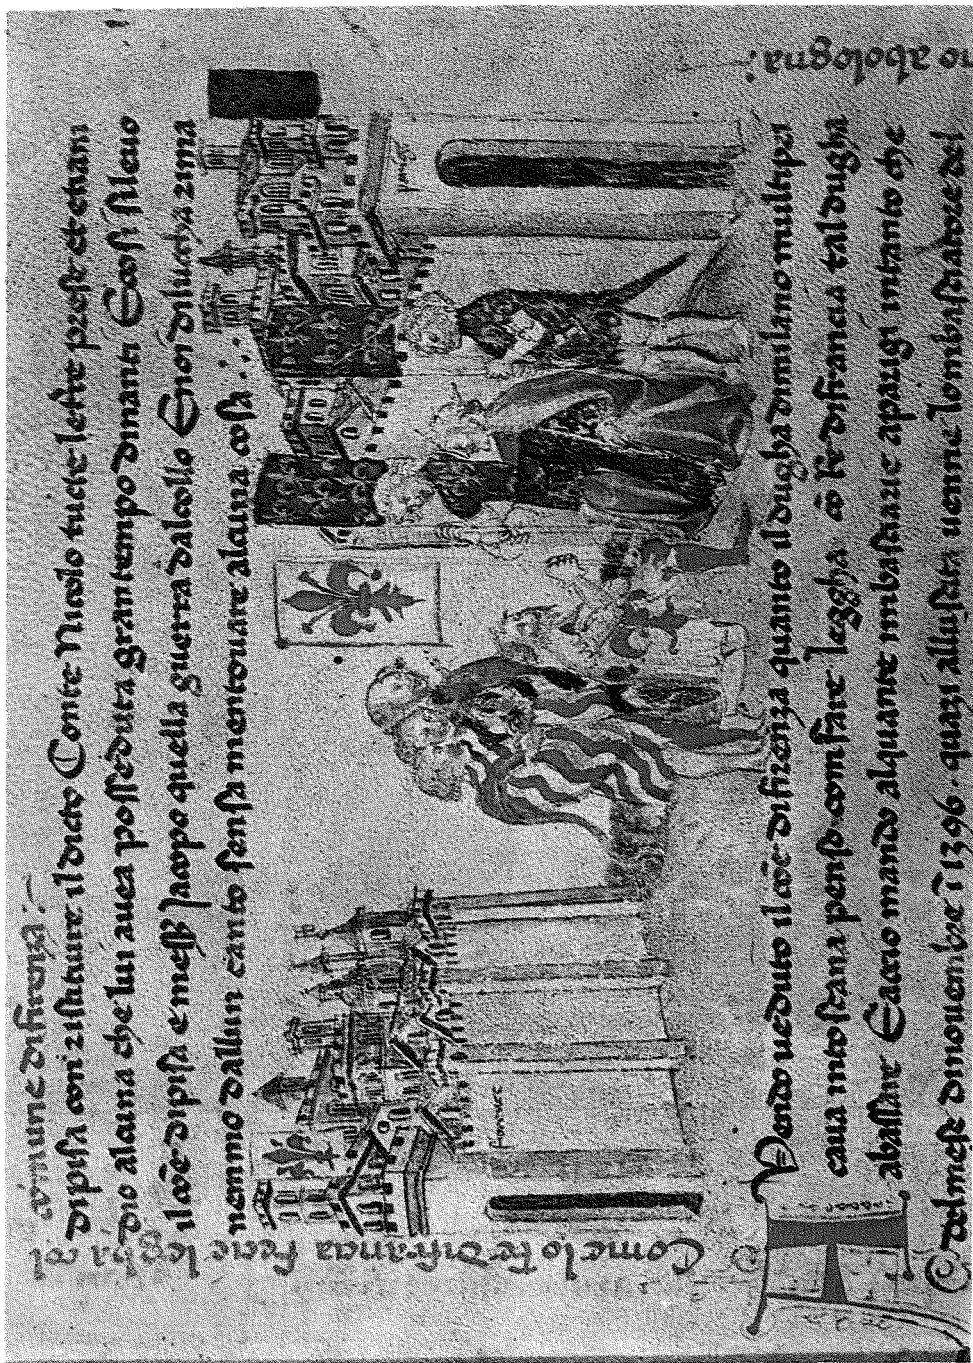 comune di firenza:~
di pisa con zistituire il dicto Conte Nicolo tucte leste prese et chani
dio alcuna che lui avea posseduta gran tempo dinanti E cosi si levo
il cõe di pisa e mess Jacopo quella guerra da collo E noi di lucha zima
nemmo dallun canto sensa mentovare alcuna cosa
Come lo re di francia fecie legha col
firense
parigi
Vendo veduto il cõe di firenza quanto il dugha di milano multipri
cava in toscana penso com fare legha cõ re di francia tal dugha
abassare E acio mando alquante imbasciarie a parigi intanto che
del mese di novembre ĩ 1396. quazi alluscita venne lombasciatore del
no a bologna: